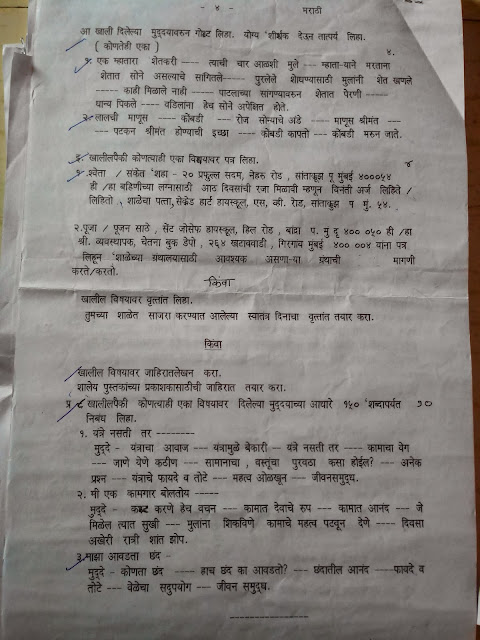 - ४ - मराठी
आ खाली दिलेल्या मुद्दयावरुन गोष्ट लिहा. योग्य शीर्षक देउन तात्पर्य लिहा.
( कोणतेही एका ) ४.
१. एक म्हातारा शेतकरी ---- त्याची चार आळशी मुले --- म्हाता-याने मरताना
शेतात सोने असल्याचे सांगितले----- पुरलेले शोधण्यासाठी मुलांनी शेत खणले
----- काही मिळाले नाही ----- पाटलाच्या सांगण्यावरुन शेतात पेरणी -----
धान्य पिकले ---- वडिलांना हेच सोने अपेक्षित होते.
२. लालची माणूस ---- कोंबडी ---- रोज सोन्याचे अंडे ---- माणूस श्रीमंत ----
---- पटकन श्रीमंत होण्याची इच्छा ---- कोंबडी कापतो --- कोंबडी मरुन जाते.
इ. खालीलपैकी कोणत्याही एका विषयावर पत्र लिहा. ४
१. श्वेता / संकेत शहा - २० प्रफुल्ल सदम, नेहरु रोड , सांताक्रुझ पू मुंबई ४०००५४
ही /हा बहिणीच्या लग्नासाठी आठ दिवसांची रजा मिळावी म्हणून विनंती अर्ज लिहिते /
लिहितो . शाळेचा पत्ता, सेक्रेड हार्ट हायस्कूल, एस, व्ही. रोड, सांताक्रुझ प मुं. ५४.
२.पूजा / पूजन साठे , सेंट जोसेफ हायस्कूल, हिल रोड , बांद्रा प. मुं ४०० ०५० ही /हा
श्री. व्यवस्थापक, चेतना बुक डेपो , २६४ खटाववाडी , गिरगांव मुंबई ४०० ००४ यांना पत्र
लिहून शाळेच्या ग्रंथालयासाठी आवश्यक असणा-या ग्रंथाची मागणी
करते/करतो.
किंवा
खालील विषयावर वृत्तांत लिहा.
तुमच्या शाळेत साजरा करण्यात आलेल्या स्वातंत्र दिनाचा वृत्तांत तयार करा.
किंवा
खालील विषयावर जाहिरातलेखन करा.
शालेय पुस्तकांच्या प्रकाशकासाठीची जाहिरात तयार करा.
प्र ८ खालीलपैकी कोणत्याही एका विषयावर दिलेल्या मुद्दयाच्या आधारे १५० शब्दापर्यंत १०
निबंध लिहा.
१. यंत्रे नसती तर --------
मुद्दे - यंत्राचा आवाज --- यंत्रामुळे बेकारी -- यंत्रे नसती तर ---- कामाचा वेग
--- जाणे येणे कठीण --- सामानाचा , वस्तूंचा पुरवठा कसा होईल? --- अनेक
प्रश्न --- यंत्राचे फायदे व तोटे --- महत्व ओळखून --- जीवनसमृध्द.
२. मी एक कामगार बोलतोय -----
मुद्दे - कष्ट करणे हेच वचन --- कामात देवाचे रुप --- कामात आनंद --- जे
मिळेल त्यात सुखी --- मुलांना शिकविणे कामाचे महत्व पटवून देणे ---- दिवसा
अखेरी रात्री शांत झोप.
३. माझा आवडता छंद -
मुद्दे - कोणता छंद ---- हाच छंद का आवडतो? --- छंदातील आनंद ----फायदे व
तोटे --- वेळेचा सदुपयोग --- जीवन समृध्द.